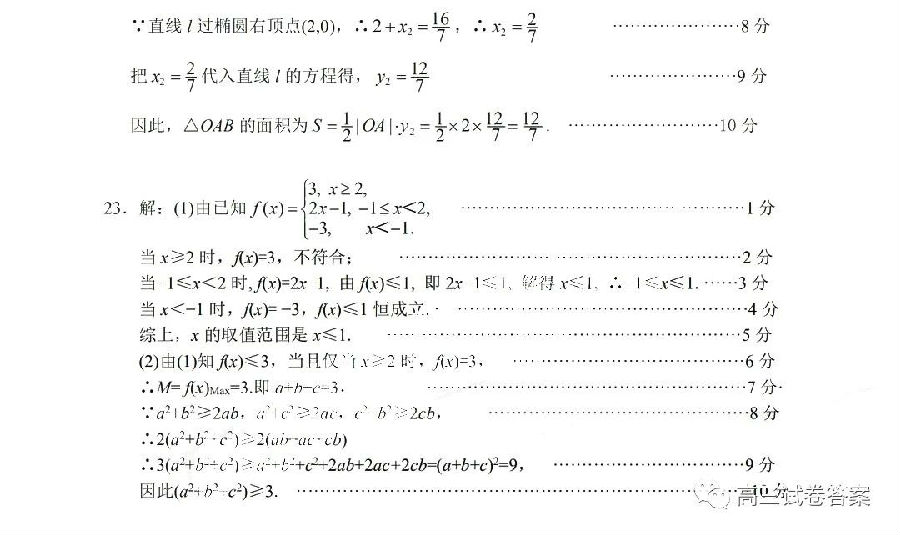 ∵直线 l 过椭圆右顶点(2,0)，∴2+x₂=16/7，∴x₂=2/7 ……………………8 分
把 x₂=2/7 代入直线 l 的方程得，y₂=12/7 ……………………9 分
因此，△OAB 的面积为 S=1/2|OA|·y₂=1/2×2×12/7=12/7. ……………………10 分
23．解：(1)由已知 f(x)={3, x≥2, 2x−1, −1≤x<2, −3, x<−1. ……………………1 分
当 x≥2 时，f(x)=3，不符合； ……………………2 分
当 −1≤x<2 时,f(x)=2x−1, 由 f(x)≤1, 即 2x−1≤1, 解得 x≤1, ∴−1≤x≤1. ……3 分
当 x<−1 时，f(x)=−3，f(x)≤1 恒成立. ……………………4 分
综上，x 的取值范围是 x≤1. ……………………5 分
(2)由(1)知 f(x)≤3，当且仅当 x≥2 时，f(x)=3， ……………………6 分
∴M= f(x)Max=3.即 a+b+c=3. ……………………7 分
∵a²+b²≥2ab，a²+c²≥2ac，c²+b²≥2cb， ……………………8 分
∴2(a²+b²+c²)≥2(ab+ac+cb)
∴3(a²+b²+c²)≥a²+b²+c²+2ab+2ac+2cb=(a+b+c)²=9， ……………………9 分
因此(a²+b²+c²)≥3. ……………………10 分
高三试卷答案